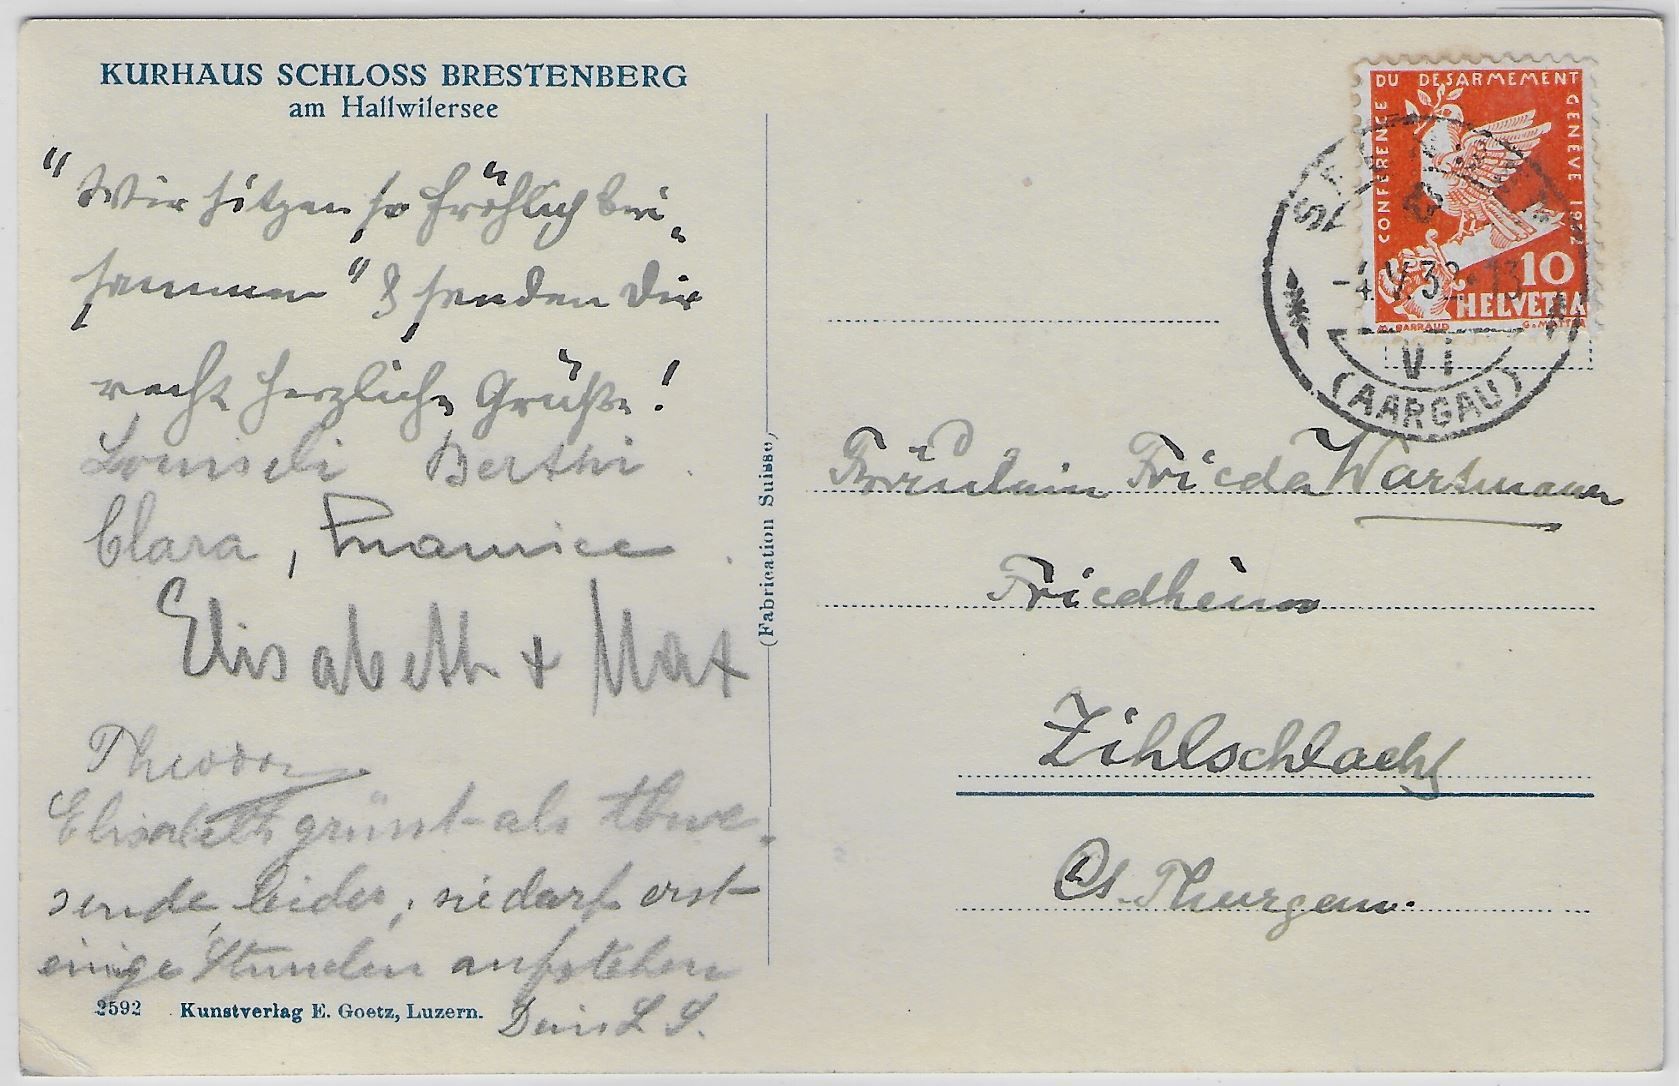 KURHAUS SCHLOSS BRESTENBERG
am Hallwilersee
"Wir sitzen so fröhlich bei-
sammen" & senden Dir
recht herzliche Grüße!
Berthi
Clara, Maurice
Elisabeth + Max
Theodor
Elisabeth grüsst als Abwe-
sende, leider, sie darf erst
einige Stunden aufstehen
2592 Kunstverlag E. Goetz, Luzern.
(Fabrication Suisse)
CONFERENCE DU DESARMEMENT GENÈVE 1932
10
HELVETIA
M. BARRAUD G. MATTER
-4.V.32-13
VI
(AARGAU)
Fräulein Frieda Wartmann
Friedheim
Zihlschlacht
Ct. Thurgau.